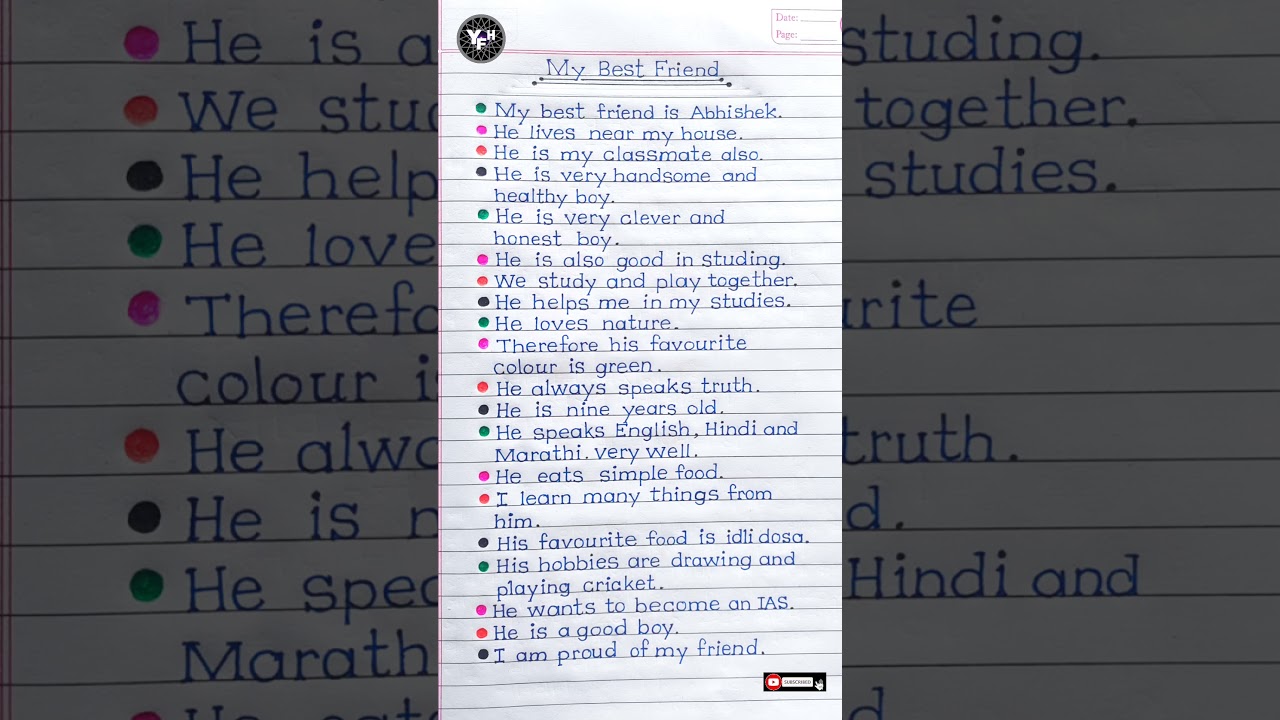 YFH
Date: ______
Page: ______
My Best Friend
My best friend is Abhishek.
He lives near my house.
He is my classmate also.
He is very handsome and
healthy boy.
He is very alever and
honest boy.
He is also good in studing.
We study and play together.
He helps me in my studies.
He loves nature.
Therefore his favourite
colour is green.
He always speaks truth.
He is nine years old.
He speaks English, Hindi and
Marathi. very well.
He eats simple food.
I learn many things from
him.
His favourite food is idli dosa.
His hobbies are drawing and
playing cricket.
He wants to become an IAS.
He is a good boy.
I am proud of my friend.
SUBSCRIBED
He is a
We stud
He help
He love
Therefo
colour i
He alwa
He is n
He spea
Marath
studing.
together.
studies.
urite
truth.
d.
Hindi and